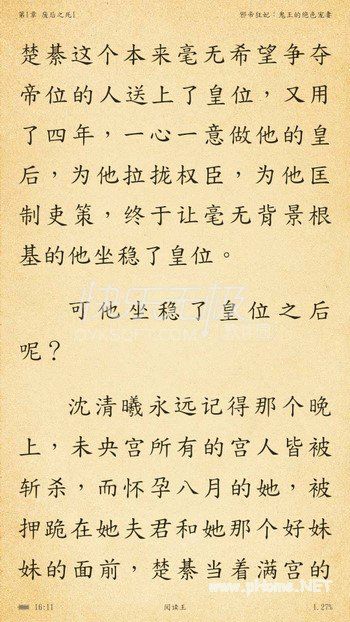 第1章 废后之死1 邪帝狂妃：鬼王的绝色宠妻
楚綦这个本来毫无希望争夺
帝位的人送上了皇位，又用
了四年，一心一意做他的皇
后，为他拉拢权臣，为他匡
制吏策，终于让毫无背景根
基的他坐稳了皇位。
可他坐稳了皇位之后
呢？
沈清曦永远记得那个晚
上，未央宫所有的宫人皆被
斩杀，而怀孕八月的她，被
押跪在她夫君和她那个好妹
妹的面前，楚綦当着满宫的
www.pHome.NET
16:11 阅读王 1.27%